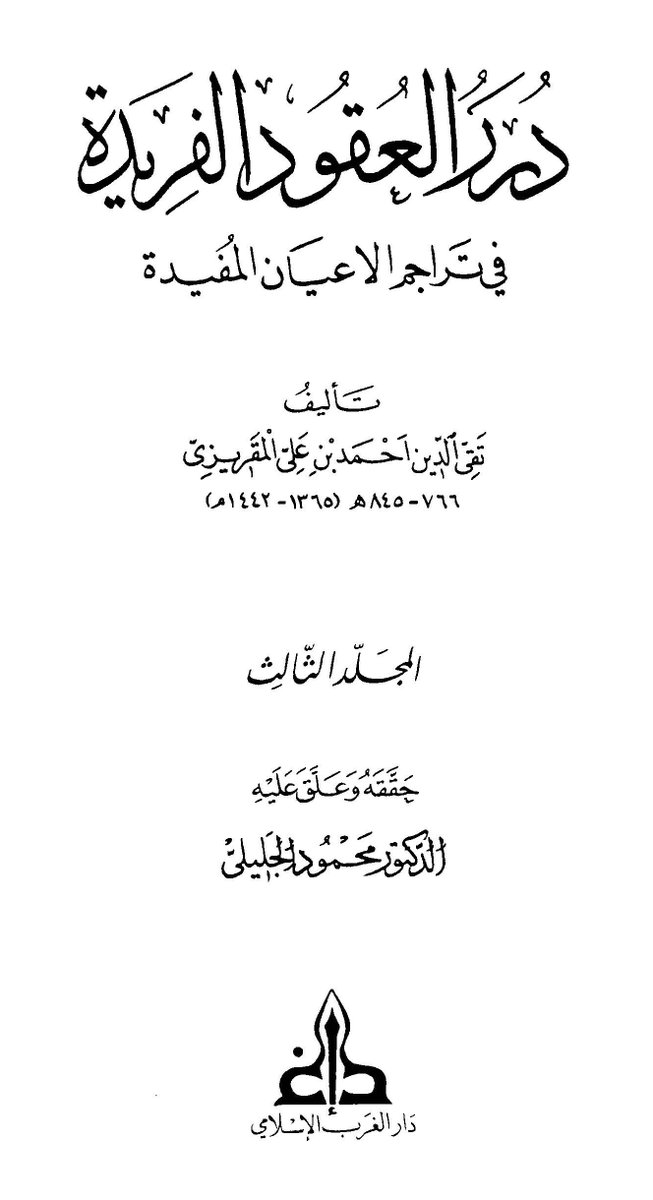 دُرَرُ العُقُود الفَرِيدَة
في تَراجم الاعيَان المُفيدة
تَأليفُ
تَقِيّ الدِّين اَحْمَد بْنِ عَلِيّ المْقَريزِيّ
٧٦٦ - ٨٤٥ هـ (١٣٦٥ - ١٤٤٢م)
المجَلّد الثَّالِث
حَقَّقَهُ وَعَلَّقَ عَلَيْهِ
الدّكتور مَحْمُود الجَليليّ
دَار الغَرب الإسلامي